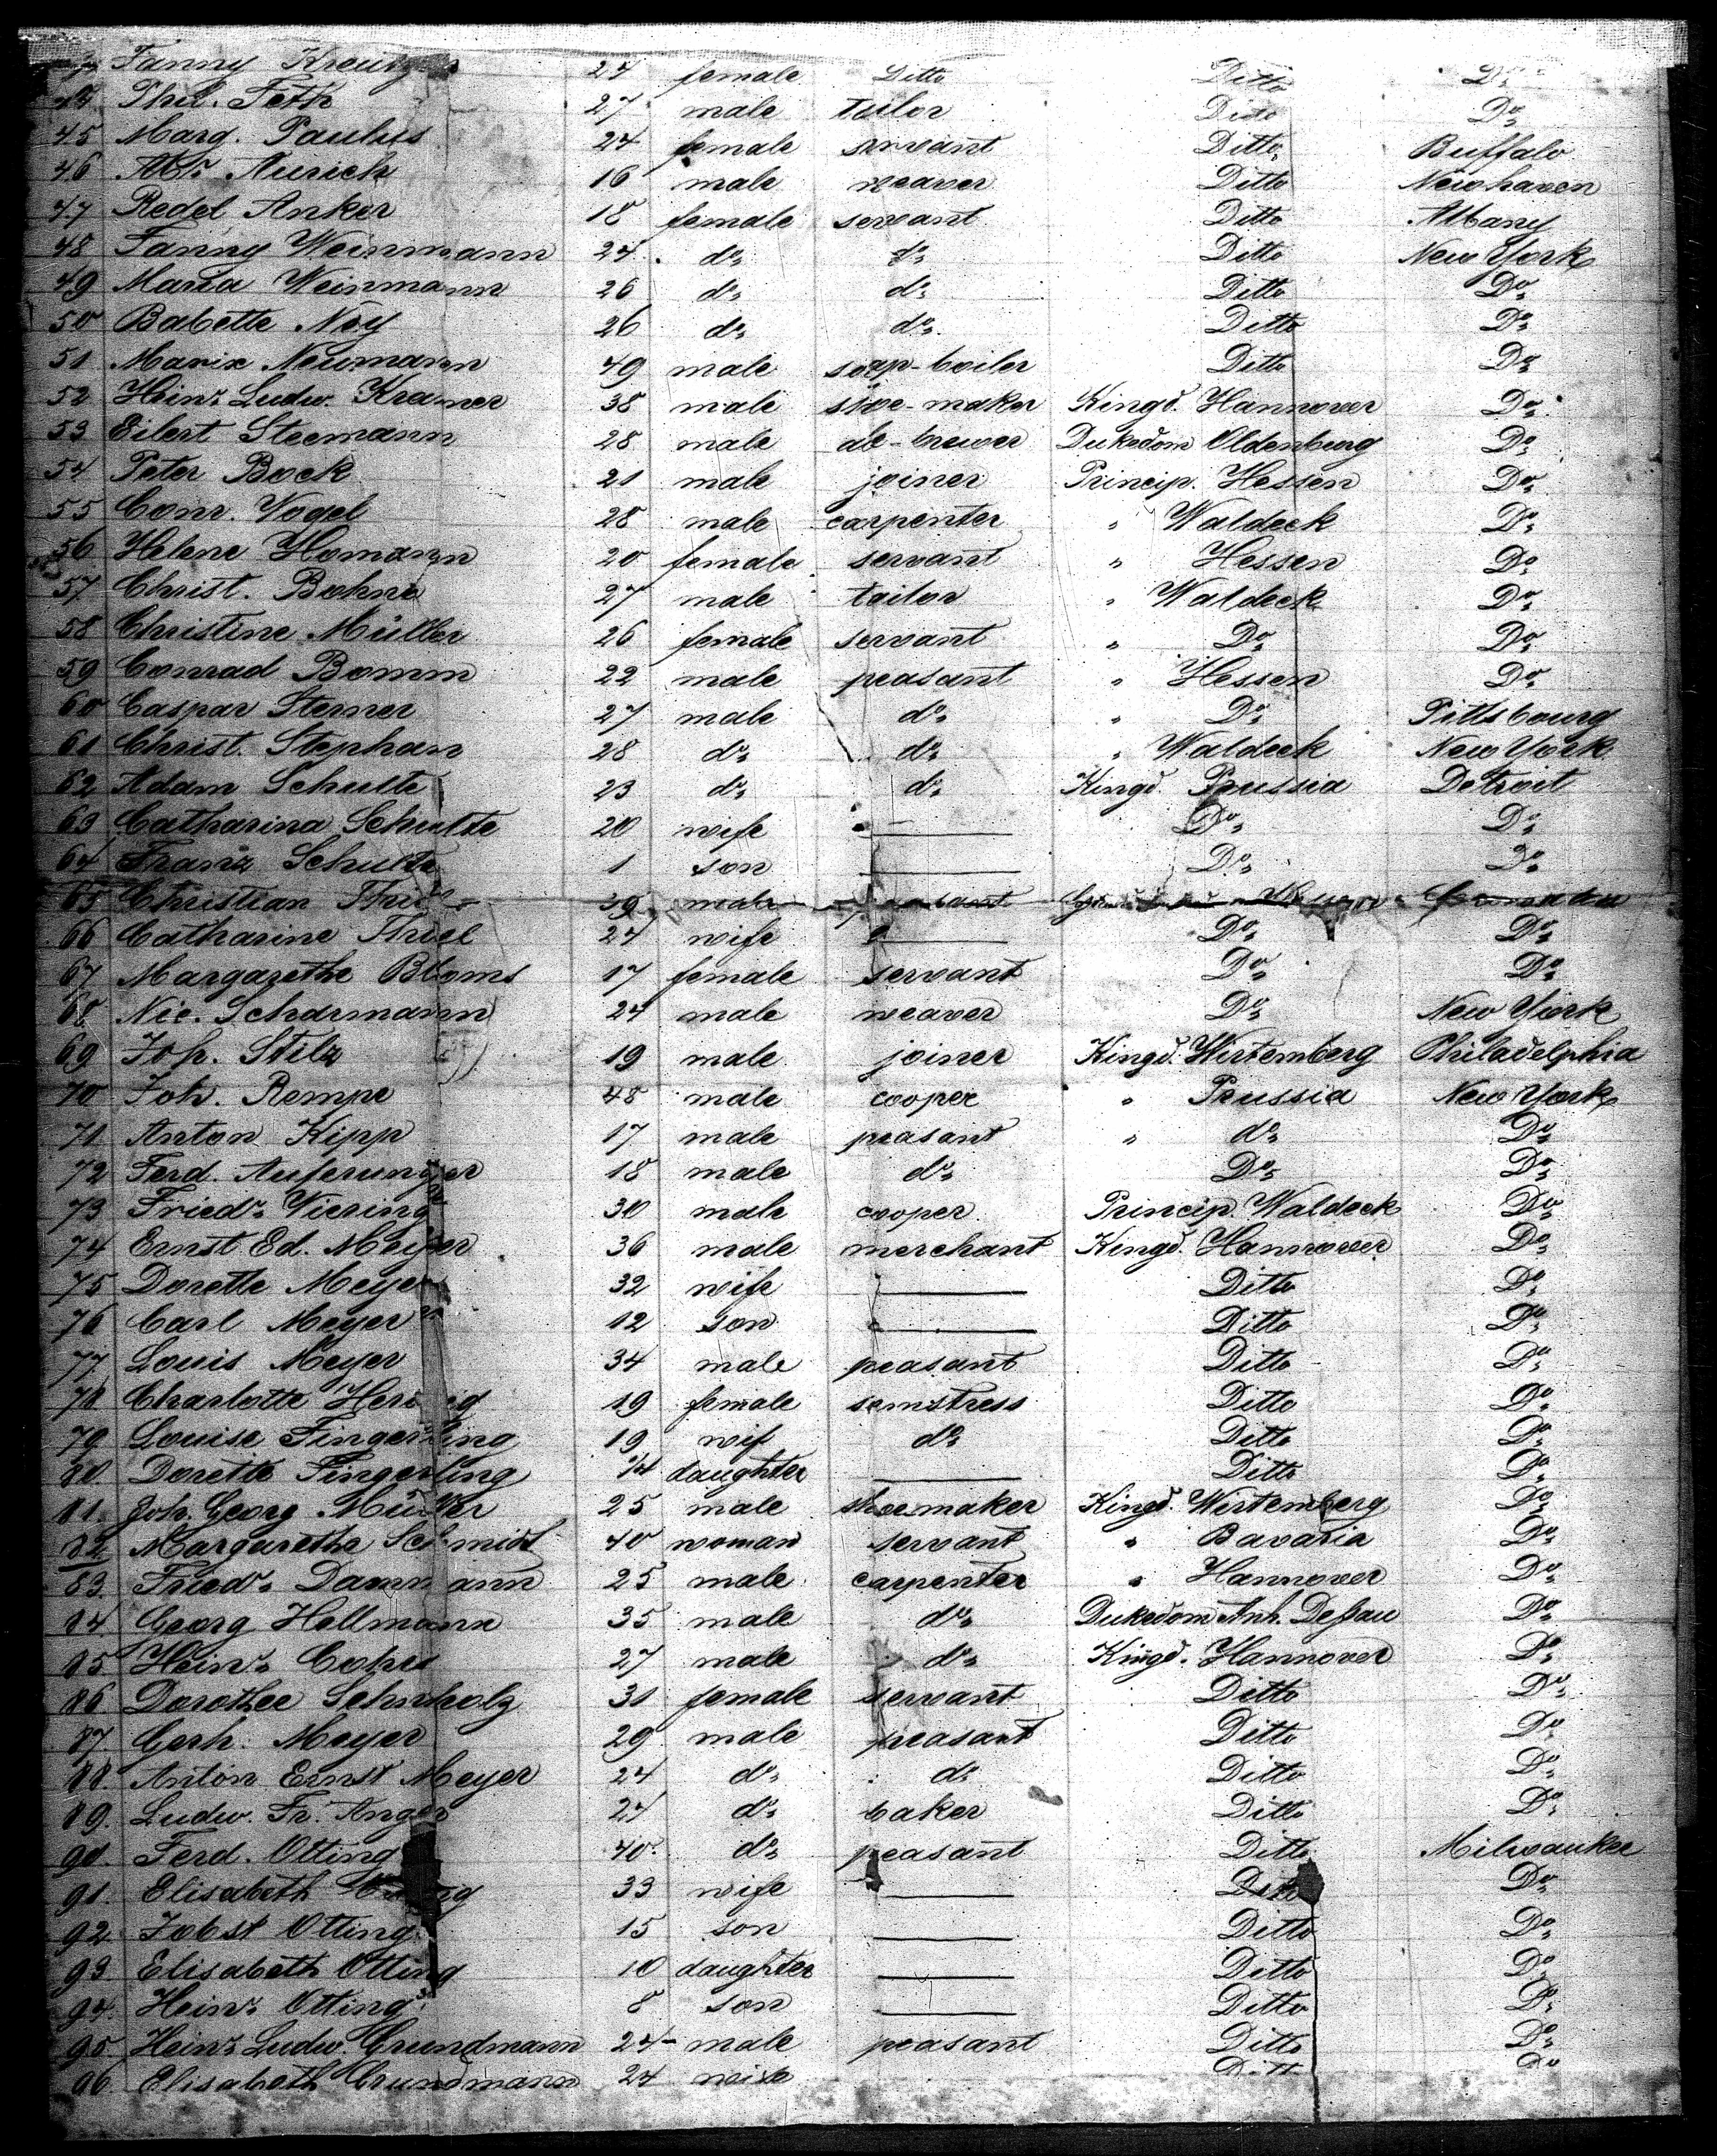 Fanny 24 female Ditto Ditto Do
44 Phil. Feth 27 male tailor Ditto Do
45 Marg. Paulus 24 female servant Ditto Buffalo
46 Abr. Aurich 16 male weaver Ditto Newhaven
47 Redel Anker 18 female servant Ditto Albany
48 Fanny Weinmann 24 do do Ditto New York
49 Maria Weinmann 26 do do Ditto Do
50 Babette Ney 26 do do Ditto Do
51 Neumann 49 male soap-boiler Ditto Do
52 Heinr. Ludw. Kramer 38 male shoe-maker Kingd. Hannover Do
53 Eilert Steemann 28 male ale-brewer Dukedom Oldenburg Do
54 Peter Bock 21 male joiner Princip. Hessen Do
55 Conr. Vogel 28 male carpenter " Waldeck Do
56 Helene Homann 20 female servant " Hessen Do
57 Christ. Bohne 27 male tailor " Waldeck Do
58 Christine Müller 26 female servant " Do Do
59 Conrad Bomm 22 male peasant " Hessen Do
60 Caspar Sterner 27 male do " Do Pittsbourg
61 Christ. Stephan 28 do do " Waldeck New York
62 Adam Schulte 23 do do Kingd. Prussia Detroit
63 Catharina Schulte 20 wife — Do Do
64 Franz Schulte 1 son — Do Do
65 Christian 29 male peasant
66 Catharine Thiel 24 wife — Do Do
67 Margarethe Bloms 17 female servant Do Do
68 Nic. Scharmann 24 male weaver Do New York
69 Joh. Stilz 19 male joiner Kingd. Wirtemberg Philadelphia
70 Joh. Rempe 48 male cooper " Prussia New York
71 Anton Kipp 17 male peasant " do Do
72 Ferd. 18 male do Do Do
73 Friedr. Viering 30 male cooper Princip. Waldeck Do
74 Ernst Ed. Meyer 36 male merchant Kingd. Hannover Do
75 Dorette Meyer 32 wife — Ditto Do
76 Carl Meyer 12 son — Ditto Do
77 Louis Meyer 34 male peasant Ditto Do
78 Charlotte 19 female semstress Ditto Do
79 Louise Fingerling 19 wif do Ditto Do
80. Dorette Fingerling daughter — Ditto Do
81. Joh. Georg Müller 25 male shoemaker Kingd. Wirtemberg Do
82 Margarethe Schmidt 40 woman servant " Bavaria Do
83. Friedr. Dammann 25 male carpenter " Hannover Do
84 Georg Hellmann 35 male do Dukedom Anh. Deßau Do
85 Heinr. Cohrs 27 male do Kingd. Hannover Do
86 Dorothee Schnholz 31 female servant Ditto Do
87 Gerh. Meyer 29 male peasant Ditto Do
88. Anton Ernst Meyer 24 do do Ditto Do
89. Ludw. Fr. Anger 27 do baker Ditto Do
90. Ferd. Otting 40 do peasant Ditto Milwaukee
91. Elisabeth Otting 33 wife — Ditto Do
92. Jobst Otting 15 son — Ditto Do
93 Elisabeth Otting 10 daughter — Ditto Do
94. Heinr. Otting 8 son — Ditto Do
95. Heinr. Ludw. Grundmann 24 male peasant Ditto Do
96 Elisabeth Grundmann 24 wife Ditto Do